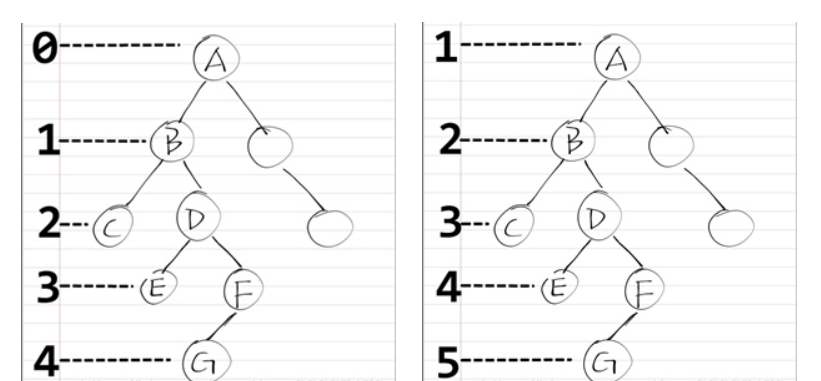 0 A
1 B
2 C D
3 E F
4 G
1 A
2 B
3 C D
4 E F
5 G